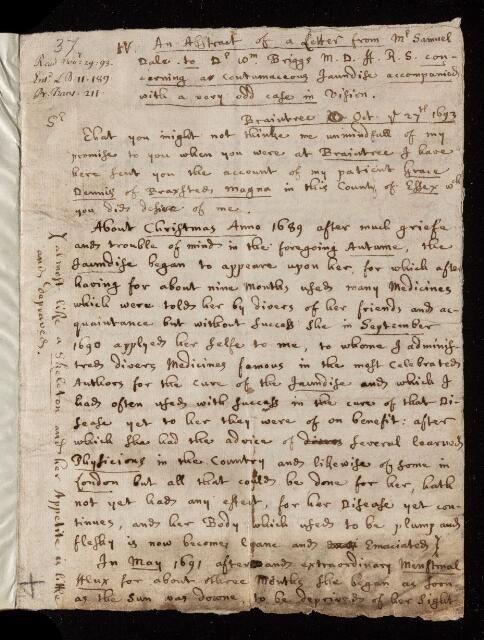 37
Read Nov: 29. 93.
Ent.d LB. 11. 189
Pr. Trans. 211.
IV. An Abstract of a Letter from Mr Samuel
Dale to Dr Wm Briggs M. D. & R. S. con-
cerning a Contumacious Jaundise accompanied
with a very odd case in Vision.
Braintree Oct. ye 27th 1693
Sr
That you might not thinke me unmindfull of my
promise to you when you were at Braintree I have
here sent you the account of my patient Grace
Dennis of Braxsted Magna in this County of Essex wch
you did desire of me.
About Christmas Anno 1689 after much griefe
and trouble of mind in the foregoing Autume, the
Jaundise began to appeare upon her, for which after
having for about nine Months used many Medicines
which were told her by divers of her friends and ac-
quaintance but without Success she in September
1690 applyed her selfe to me, to whome I adminis-
tred divers Medicines famous in the most Celebrated
Authors for the cure of the Jaundise and which I
had often used with success in the cure of that Di-
sease yet to her they were of on benefit: after
which she had the advice of severall learned
Physicions in the Country and likewise of some in
London but all that could be done for her, hath
not yet had any effect, for her Disease yet con-
tinues, and her Body which used to be plump and
fleshy is now become leane and Emaciated }
In May 1691 after and extraordinary Menstrual
flux for about three Months she began as soon
as the Sun was downe, to be deprived of her Sight
} almost like a Skeleton and her Appetite is like
wise Depraved.